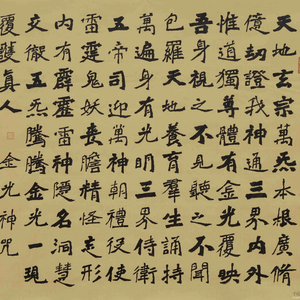 天地玄宗萬炁本根廣修
億劫證我神通三界內外
惟道獨尊體有金光覆映
吾身視之不見聽之不聞
包羅天地養育羣生誦持
萬遍身有光明三界侍衛
五帝司迎萬神朝禮役使
雷霆鬼妖喪膽精怪忘形
內有霹靂雷神隱名洞慧
交徹五炁騰騰金光一現
覆護真人
金光神咒